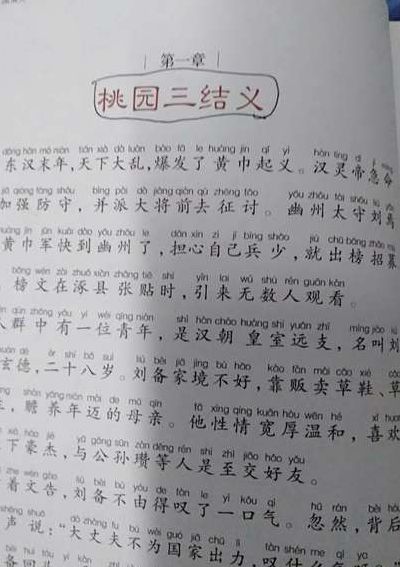 第一章
桃园三结义
dōng hàn mò nián tiān xià dà luàn bào fā le huáng jīn qǐ yì hàn líng dì jí mìng
东汉末年,天下大乱,爆发了黄巾起义。汉灵帝急命
jiā qiáng fáng shǒu bìng pài dà jiàng qián qù zhēng tǎo yōu zhōu tài shǒu liú yān
加强防守,并派大将前去征讨。幽州太守刘焉
huáng jīn jūn kuài dào yōu zhōu le dān xīn zì jǐ bīng shǎo jiù chū bǎng zhāo mù
黄巾军快到幽州了,担心自己兵少,就出榜招募
bǎng wén zài zhuō xiàn zhāng tiē shí yǐn lái wú shù rén guān kàn
榜文在涿县张贴时,引来无数人观看。
rén qún zhōng yǒu yí wèi qīng nián shì hàn cháo huáng shì yuǎn zhī míng jiào liú
人群中有一位青年,是汉朝皇室远支,名叫刘
xuán dé èr shí bā suì liú bèi jiā jìng bù hǎo kào fàn mài cǎo xié cǎo
玄德,二十八岁。刘备家境不好,靠贩卖草鞋、草
shēng shàn yǎng nián mài de mǔ qīn tā xìng qíng kuān hòu wēn hé xǐ huan
生,赡养年迈的母亲。他性情宽厚温和,喜欢
xià háo jié yǔ gōng sūn zàn děng rén shì zhì jiāo hǎo yǒu
下豪杰,与公孙瓒等人是至交好友。
kàn zhe wén gào liú bèi bù yóu de tàn le yì kǒu qì hū rán bèi hòu
看着文告,刘备不由得叹了一口气。忽然,背后
shēng shuō dà zhàng fu bú wèi guó jiā chū lì tàn shén me qì ya
声说:“大丈夫不为国家出力,叹什么气呀
bèi huí tóu yí kàn
备回头一看